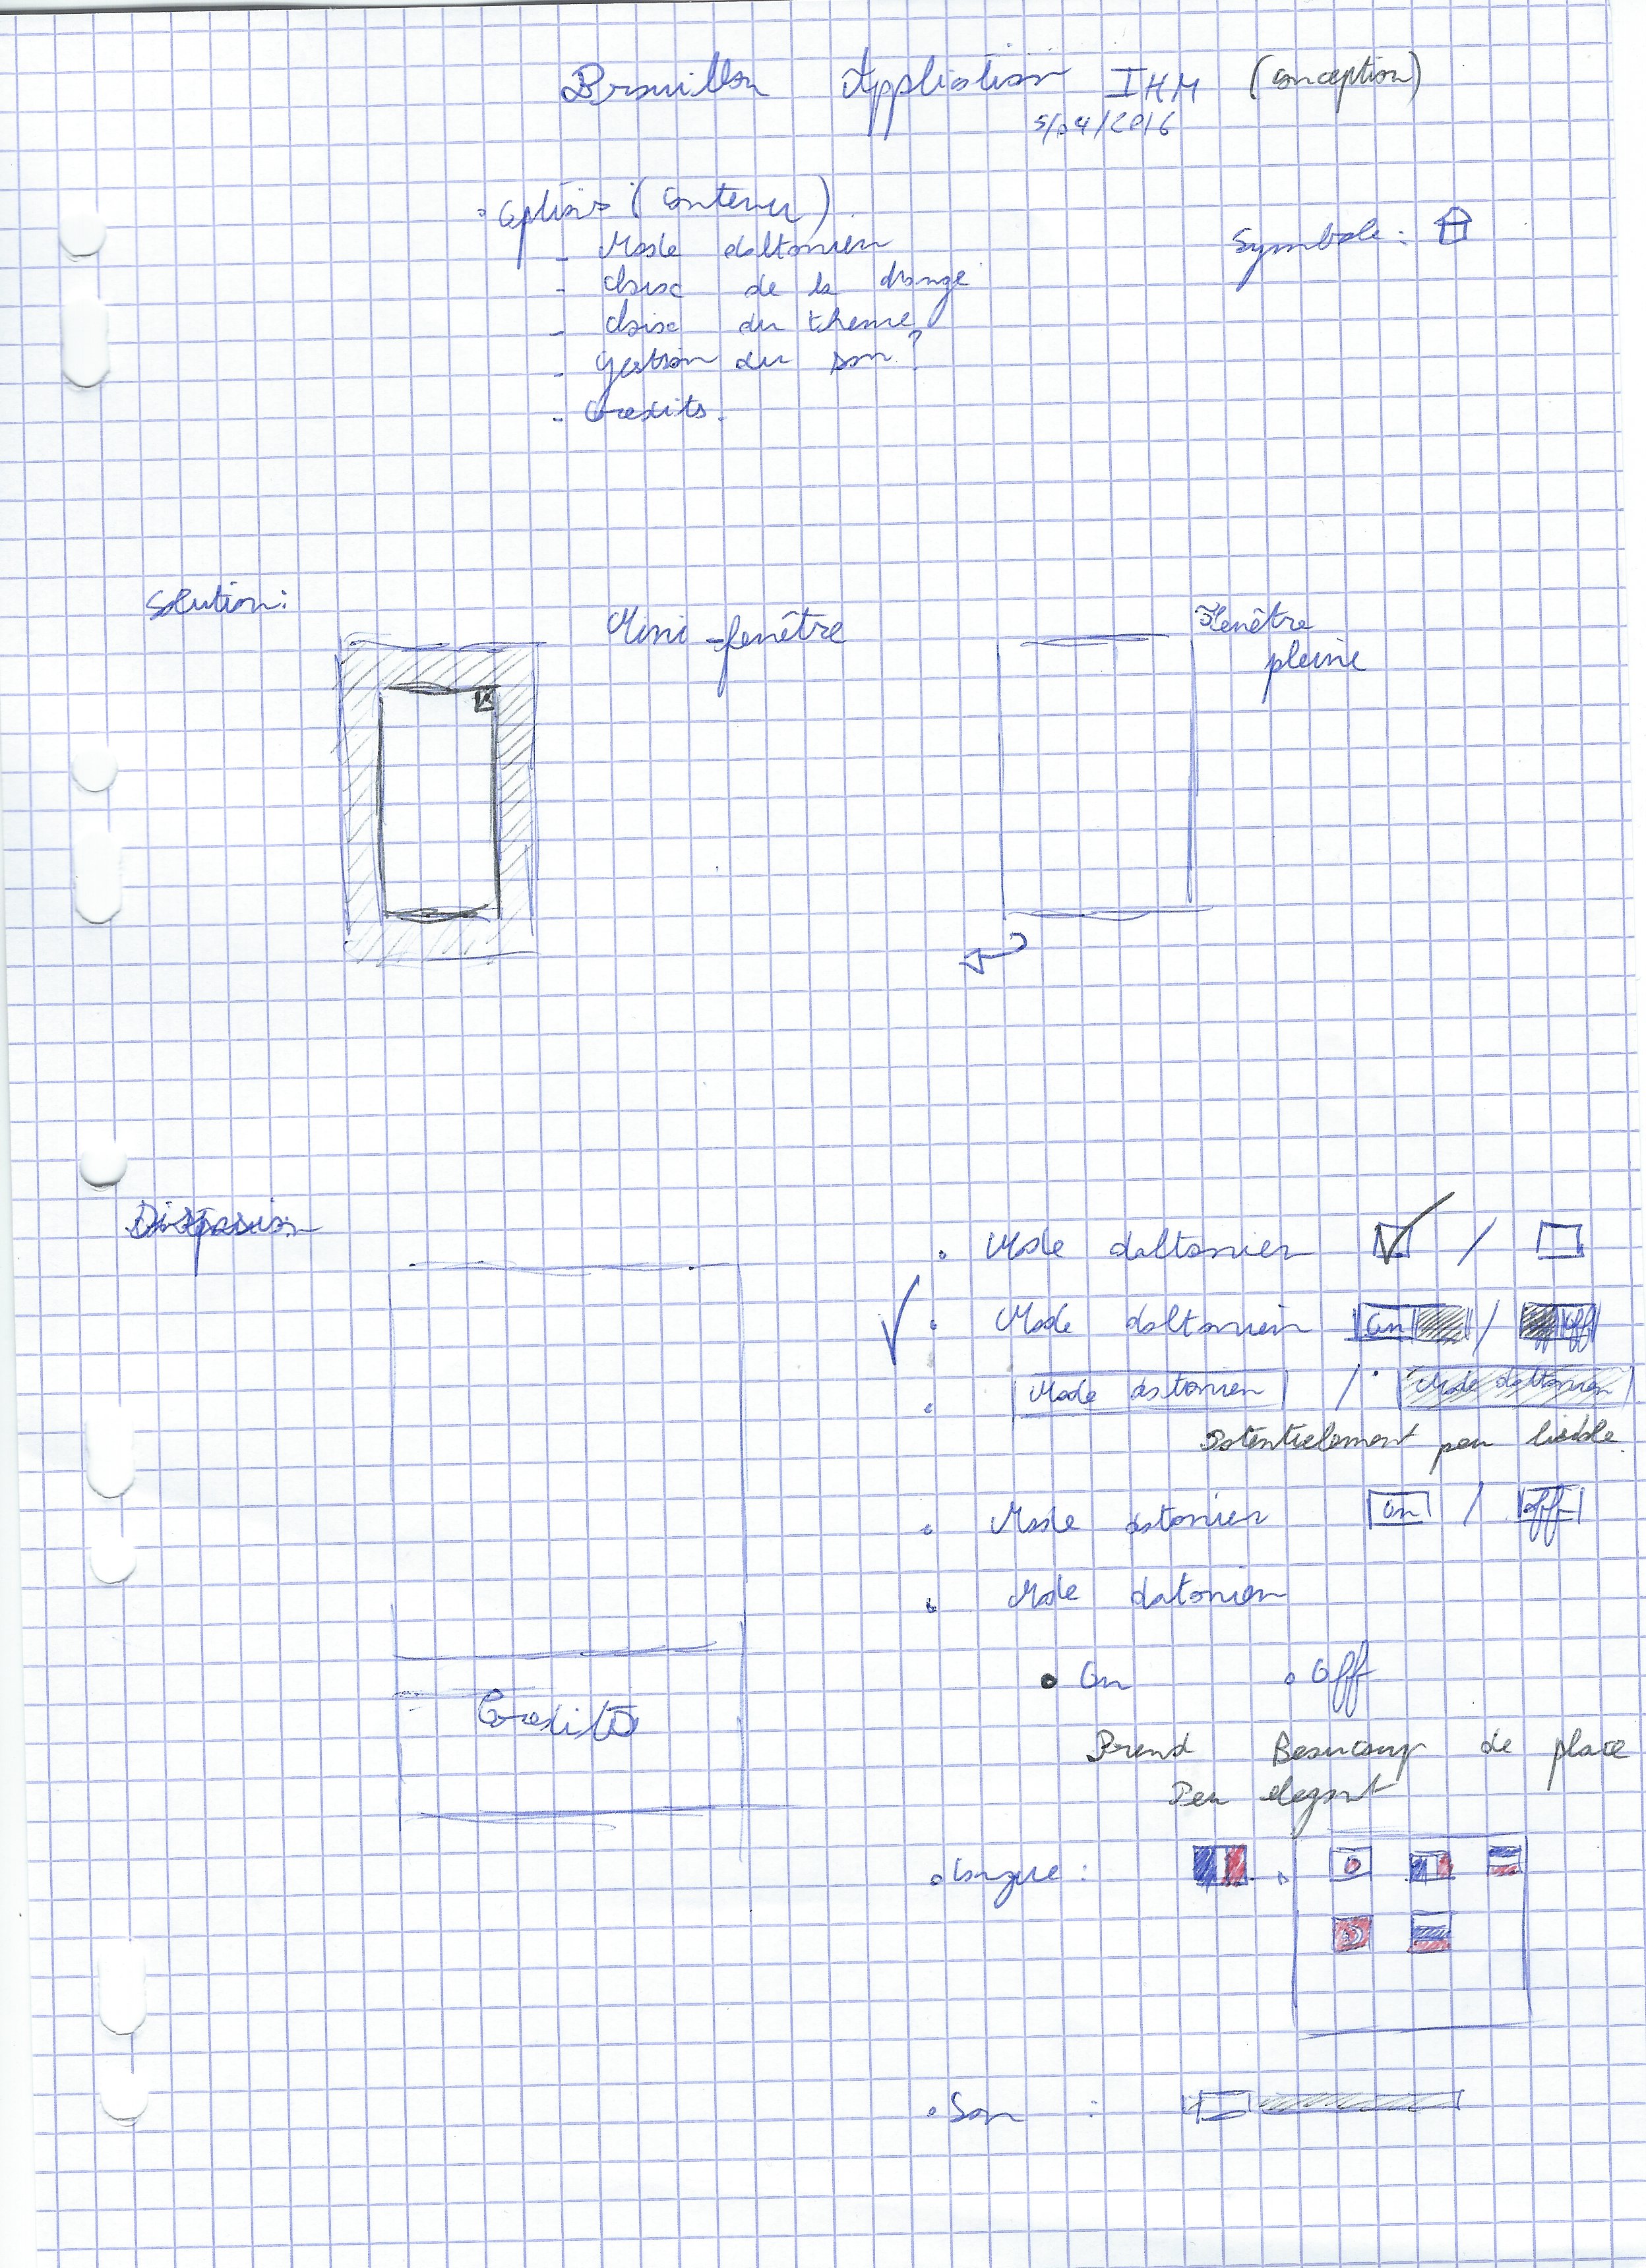 Brouillon Application IHM (conception)
5/04/2016
Options (contenu)
- Mode daltonien
- choix de la langue
- choix du theme
- gestion du son ?
- Credits.
Symbole :
Solution :
Mini-fenêtre
Fenêtre
pleine
Disposition
Credits
Mode daltonien /
Mode daltonien on / off
Mode datonien / Mode daltonien
Potentiellement peu lisible
Mode datonien on / off
Mode datonien
On Off
Prend Beaucoup de place
Peu elegant
Langue :
Son :